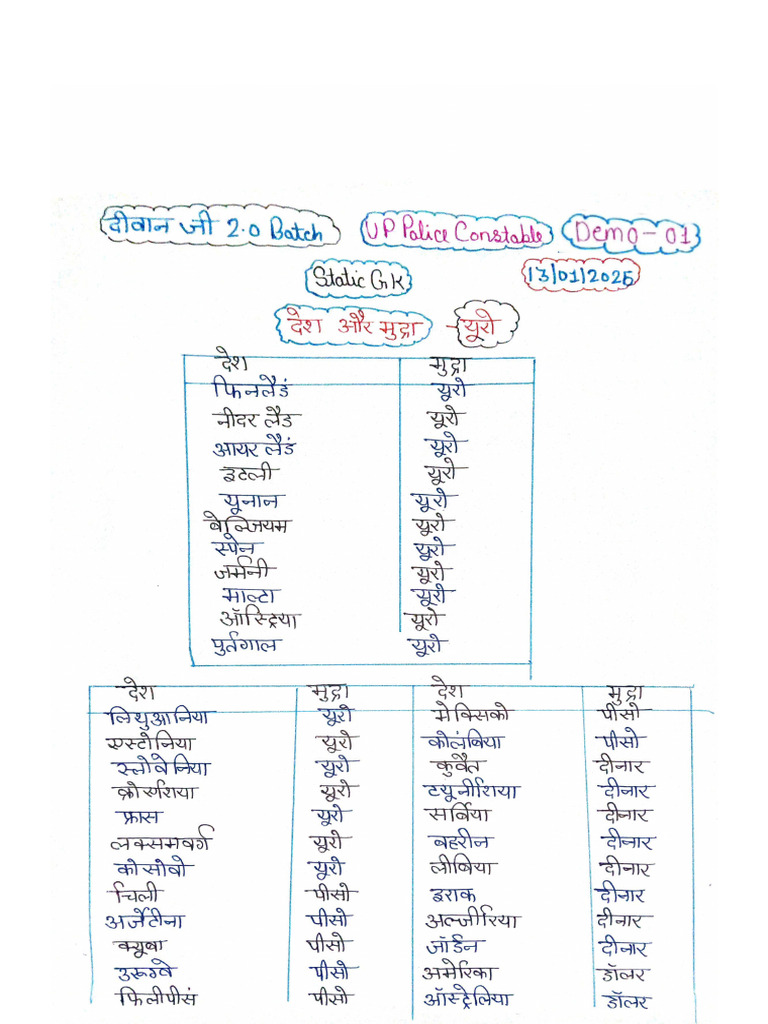 दीवान जी 2.0 Batch UP Police Constable Demo-01
Static GK 13/01/2026
देश और मुद्रा - यूरो
देश मुद्रा
फिनलैडं यूरो
नीदर लैड यूरो
आयर लैडं यूरो
इटली यूरो
यूनान यूरो
बेल्जियम यूरो
स्पेन यूरो
जर्मनी यूरो
माल्टा यूरो
ऑस्ट्रिया यूरो
पुर्तगाल यूरो
देश मुद्रा देश मुद्रा
लियुआनिया यूरो मेक्सिको पीसो
एस्टोनिया यूरो कोलंबिया पीसो
स्लोवेनिया यूरो कुवैत दीनार
क्रोर्एशिया यूरो टयूनीशिया दीनार
फ्रास यूरो सर्बिया दीनार
लक्समवर्ग यूरो बहरीन दीनार
कोसोवो यूरो लीबिया दीनार
चिली पीसो इराक दीनार
अर्जेटीना पीसो अल्जीरिया दीनार
क्यूबा पीसो जॉर्डन दीनार
उरूग्वे पीसो अमेरिका डॉलर
फिलीपीसं पीसो ऑस्ट्रेलिया डॉलर